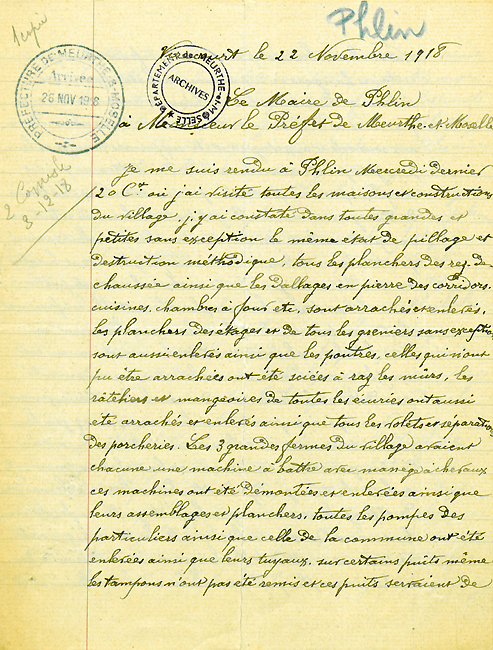 Phlin
1 copie
le 22 Novembre 1918
PREFECTURE DE MEURTHE-&-MOSELLE
Arrivée
26 NOV 1918
DÉPARTEMENT de MEURTHE-et-MOSELLE
ARCHIVES
Le Maire de Phlin
à Monsieur le Préfet de Meurthe-et-Moselle
3-12-18
Je me suis rendu à Phlin Mercredi dernier
20 Ct. où j'ai visité toutes les maisons et constructions
du village, j'y ai constaté dans toutes grandes et
petites sans exception le même état de pillage et
destruction méthodique, tous les planchers des rez-de-
chaussée ainsi que les dallages en pierre des corridors,
cuisines, chambres à four etc, sont arrachés et enlevés,
les planchers des étages et de tous les greniers sans exception
sont aussi enlevés ainsi que les poutres, celles qui n'ont
pu être arrachées ont été sciées à raz les mûrs, les
râteliers et mangeoires de toutes les écuries ont aussi
été arrachés et enlevés ainsi que tous les volets et séparations
des porcheries. Les 3 grandes fermes du village avaient
chacune une machine à battre avec manège à chevaux
ces machines ont été démontées et enlevées ainsi que
leurs assemblages et planchers, toutes les pompes des
particuliers ainsi que celle de la commune ont été
enlevées ainsi que leurs tuyaux, sur certains puits même
les tampons n'ont pas été remis et ces puits servaient de